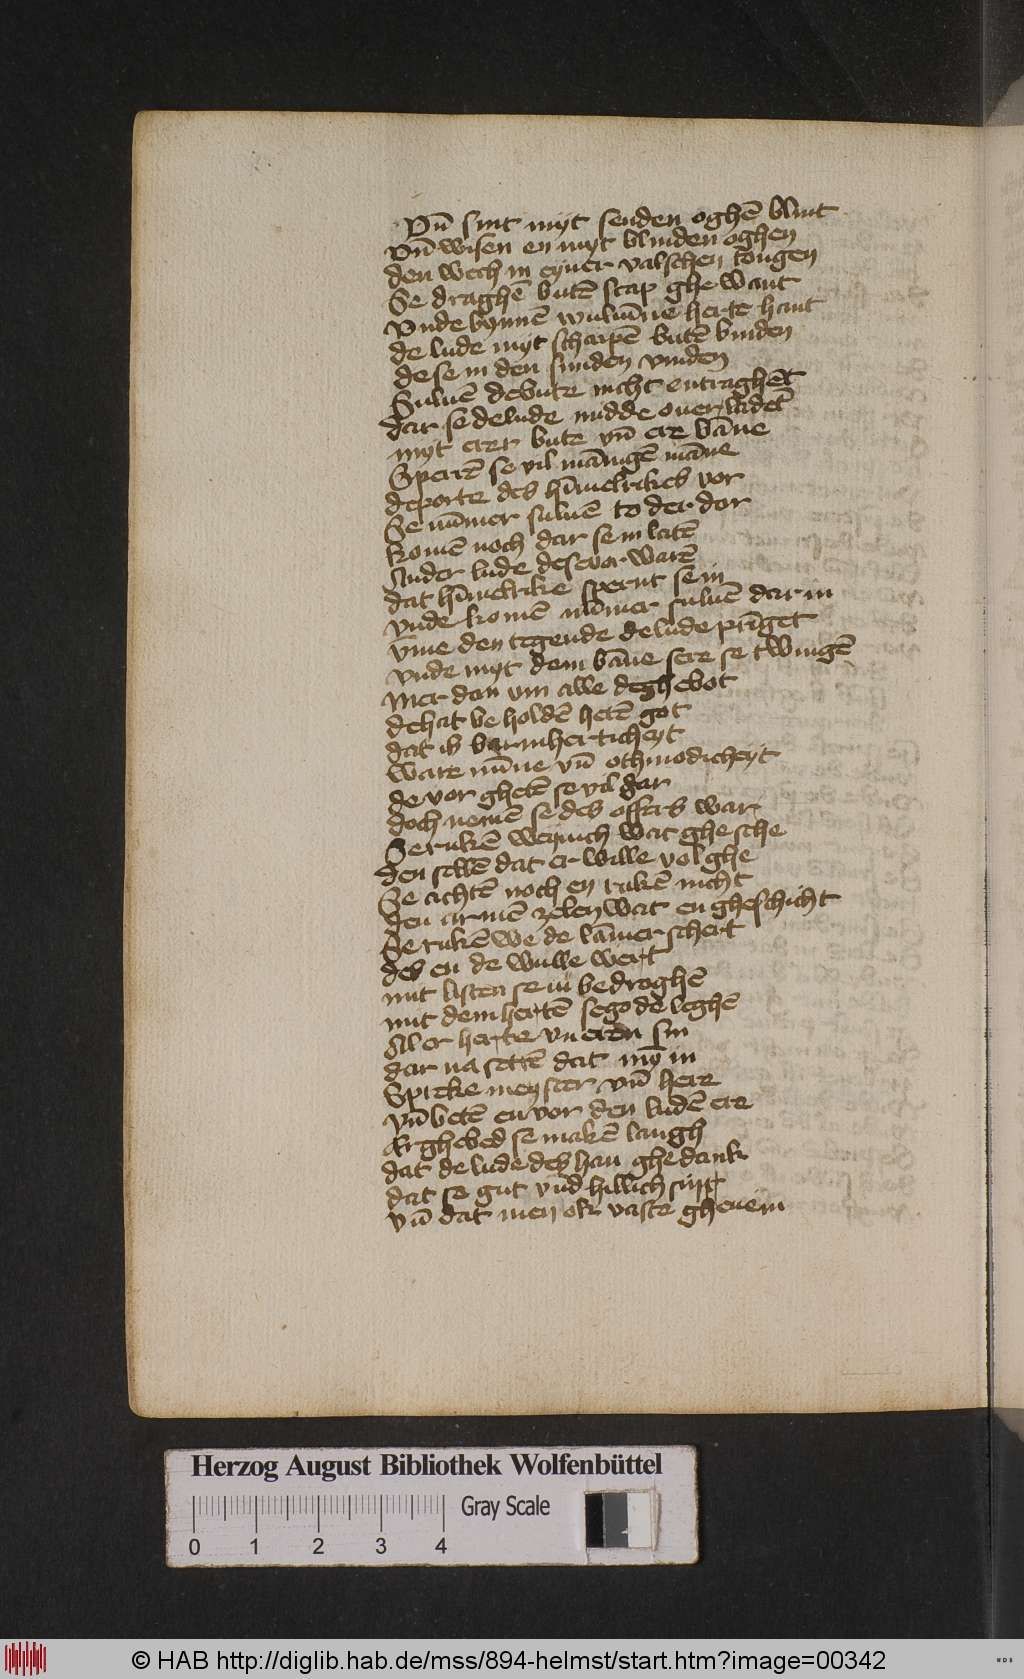 Vn̄ sint myt senden oghē blint
vn̄ wisen en myt blinden oghen
den wech in eyner valschen tougen
Se draghē butē scap ghe want
vnde bynnē wuluīne herte hant
de lude myt scharpē butē binden
de se in den sunden vinden
Suluē de bute nicht entraghēt
dar se de lude midde ouer ladet
myt erer bute vn̄ ere bāne
Sperrē se vil mānigē māne
de porte des hīmelrikes vor
Se nūmer suluē to der dor
komē noch dar se in latē
Ander lude de se vor warē
dat hīmelrike spernt se in
vnde komē nūmer suluē dar in
vm̄e den tegende de lude prīget
vnde myt dem bāne sere se twingē
Mer dan vm alle de ghebot
de hat be holdē hetē got
dat is barmherticheyt
ware mīne vn̄ othmodicheyt
de vor ghetē se vil gar
doch nemē se des offers war
Se rukē weynich wat ghe sche
den selē dat er wille vol ghe
Se achtē noch en rukē nicht
den armē zelen wat en gheschicht
Se rukē we de lāmer schert
des en de wulle wert
mit listen se in bedroghē
mit dem hertē se gode leghē
Al er herte vn eren sin
dar na settē dat mȳ in
Spreke meyster vn̄ here
vn̄ betē en vor den ludē ere
Er ghebed se makē langh
dat de lude des han ghe dank
dat se gut vnd hillich sint
vn̄ dat men ok vaste gheuem
Herzog August Bibliothek Wolfenbüttel
Gray Scale
0 1 2 3 4
© HAB http://diglib.hab.de/mss/894-helmst/start.htm?image=00342